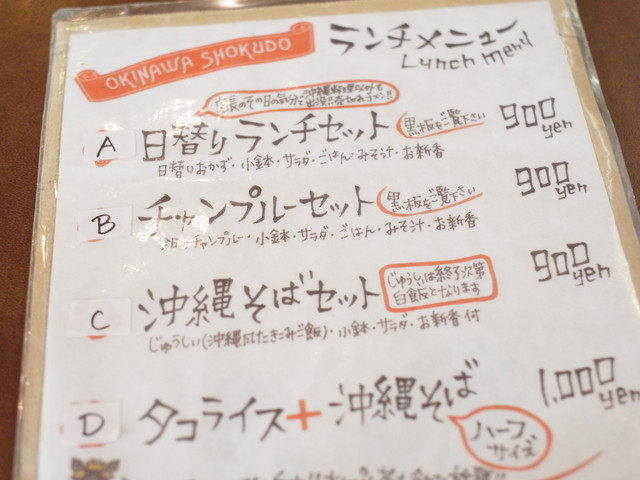 OKINAWA SHOKUDO
ランチメニュー
Lunch menu
店長のその日の気分で沖縄料理以外も
出没!!売切れゴメン!!
A 日替りランチセット 黒板をご覧下さい 900 yen
日替りおかず・小鉢・サラダ・ごはん・みそ汁・お新香
B チャンプルーセット 黒板をご覧下さい 900 yen
チャンプルー・小鉢・サラダ・ごはん・みそ汁・お新香
C 沖縄そばセット じゅうしぃは終了次第
白飯となります 900 yen
じゅうしぃ(沖縄風たきこみご飯)・小鉢・サラダ・お新香付
D タコライス+沖縄そば 1,000 yen
ハーフ
サイズ